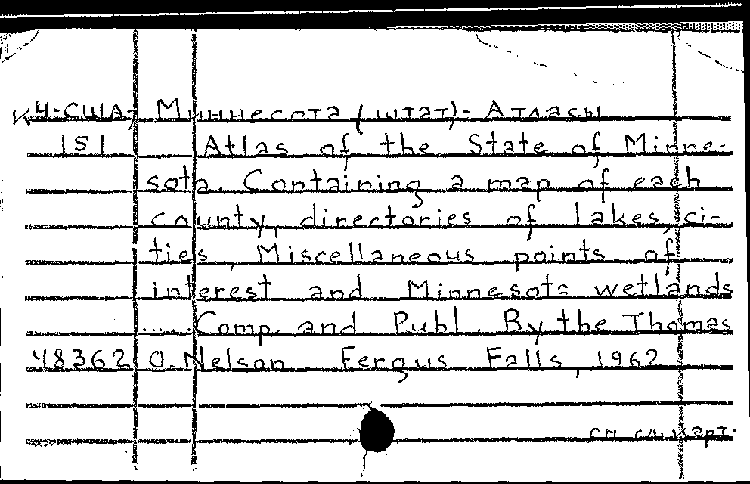 К4-США, Миннесота (штат)- Атласы
151 Atlas of the State of Minne-
sota. Containing a map of each
county, directories of lakes, ci-
ties, Miscellaneous points of
interest and Minnesota wetlands
..... Comp. and Publ. By the Thomas
48362 O. Nelson. Fergus Falls, 1962
см. сл. карт.